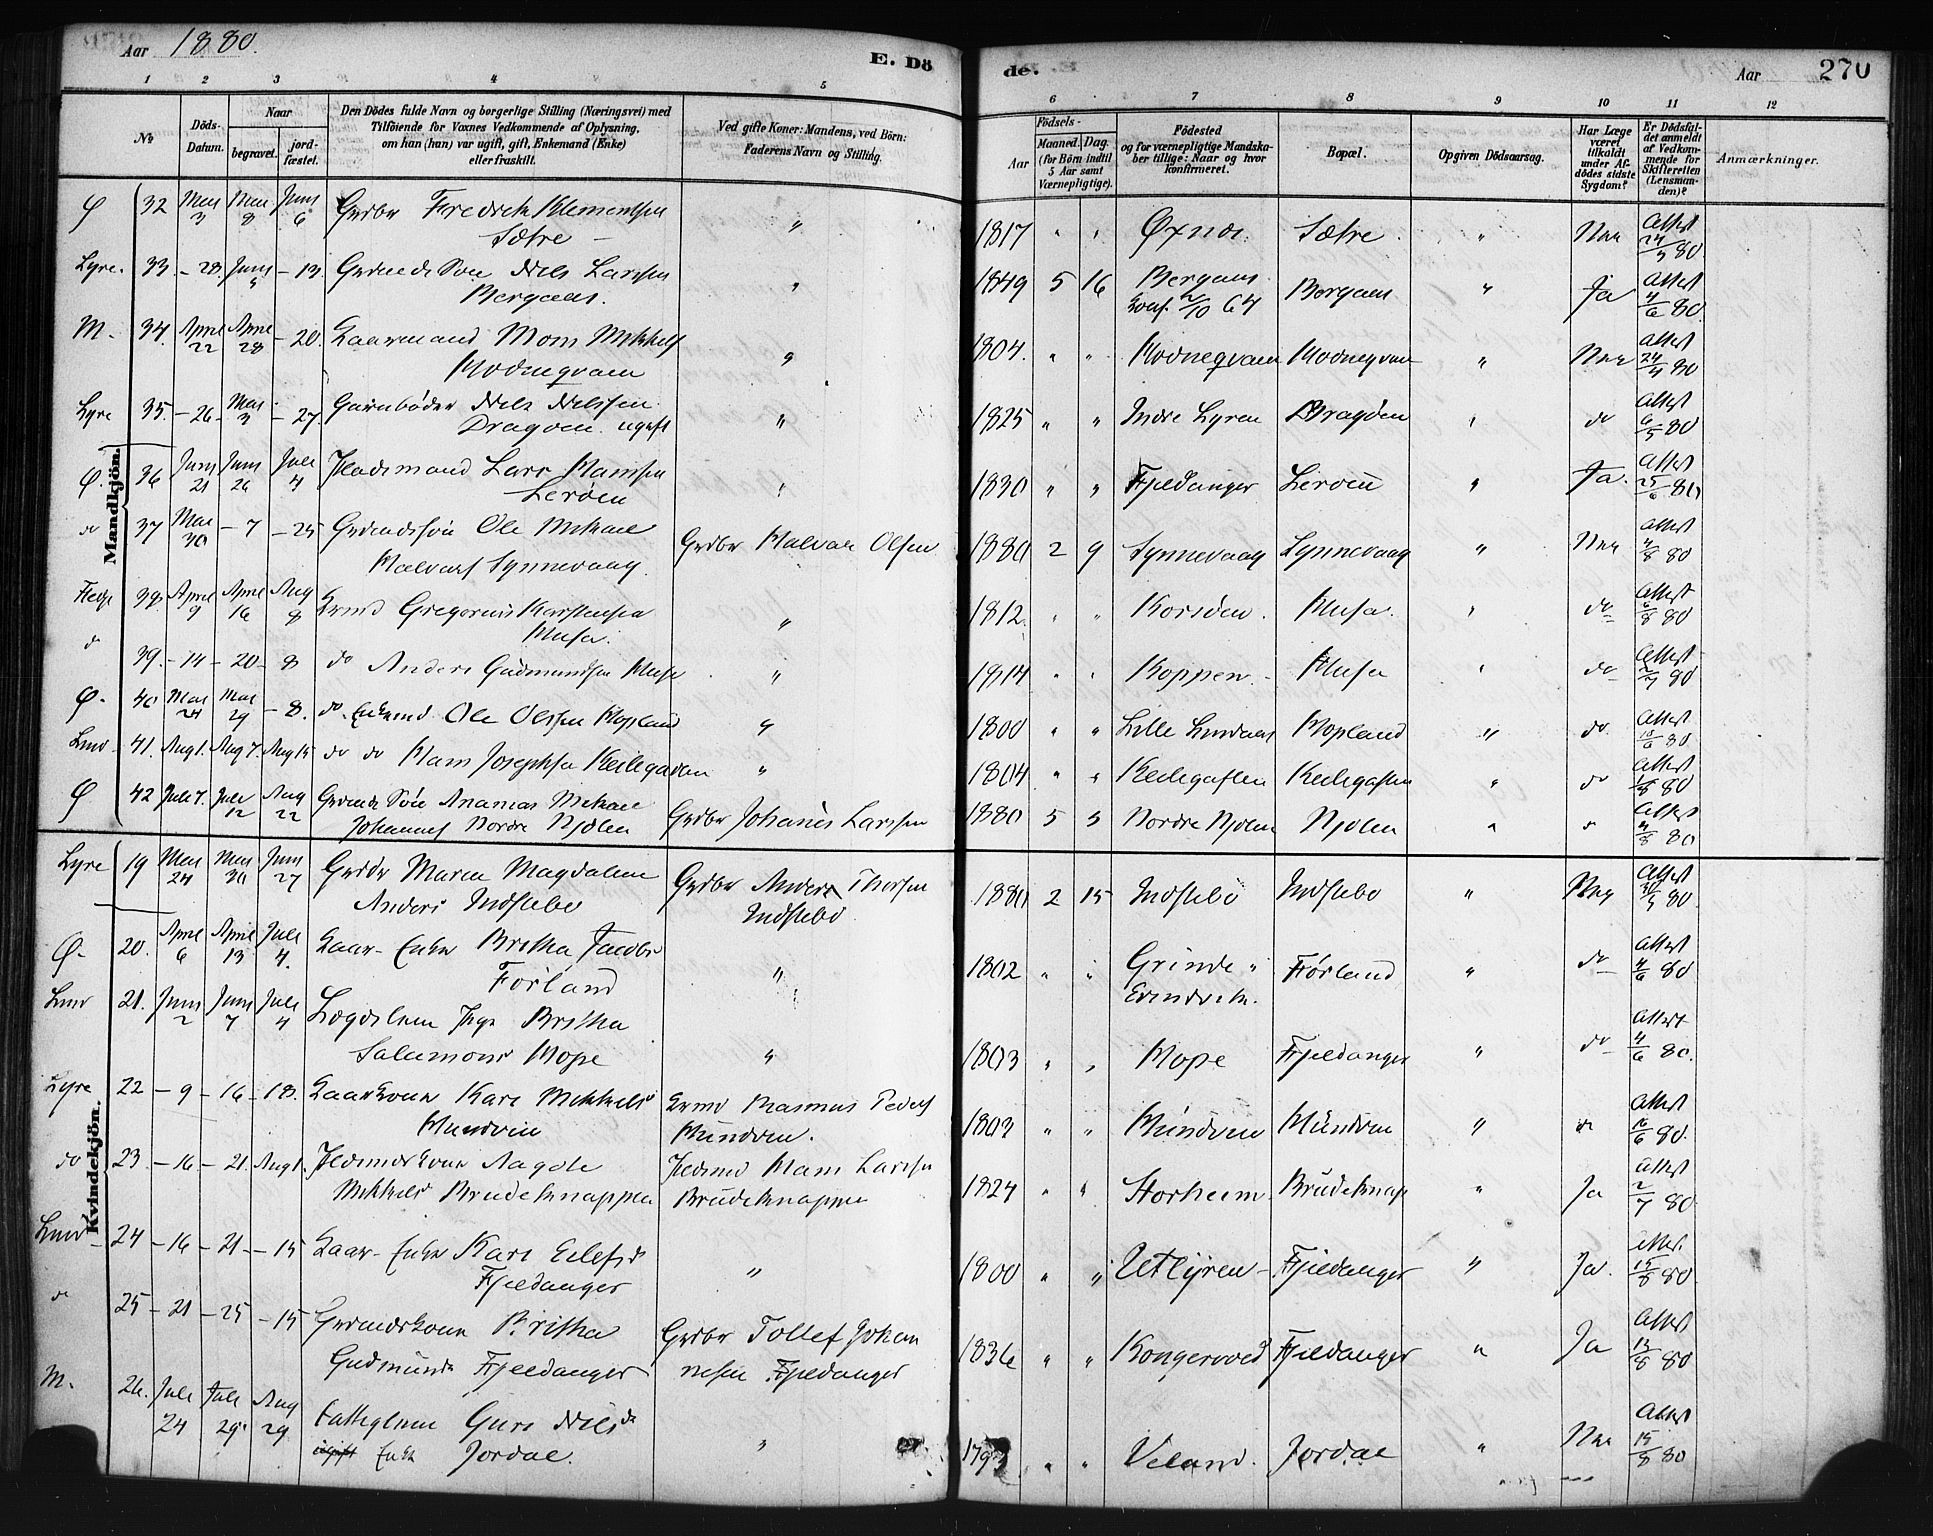 Aar 1880.
E. Dö
de.
Aar
270
1 2 3 4 5 6 7 8 9 10 11 12
No
Döds-Datum.
Naar
begravet.
jord-fæstet.
Den Dödes fulde Navn og borgerlige Stilling (Næringsvei) med
Tilföiende for Voxnes Vedkommende af Oplysning,
om han (hun) var ugift, gift, Enkemand (Enke)
eller fraskilt.
Ved gifte Koner: Mandens, ved Börn:
Faderens Navn og Stilling.
Födsels-
Aar
Maaned. Dag.
(for Börn indtil
5 Aar samt
Værnepligtige).
Födested
og for værnepligtige Mandska-
ber tillige: Naar og hvor
konfirmeret.
Bopæl.
Opgiven Dödsaarsag.
Har Læge
været
tilkaldt
under Af-
dödes sidste
Sygdom?
Er Dödsfal-
det anmeldt
af Vedkom-
mende for
Skifteretten
(Lensman-
den)?
Anmærkninger.
Mandkjön.
Ø 32 Mai 3 Mai 8 Juni 6 Grdbr Fredrik Klementsen
Sætre " 1817 " " Sætre " Nei Attest 24/5 80
Lyre. 33 - 28. Juni 5 - 13. Grdmds Sön Nils Larssen
Bergaas. " 1849 5 16 Bergaas Konf. 2/10 64 Bergaas " Ja Attest 4/6 80
M. 34. April 22 April 28 - 20. Kaarmand Mons Mikkels
Kodneqvam " 1804. " " Kodneqvam Kodneqvam " Nei Attest 24/4 80
Lyre 35. - 26 - Mai 3 - 27. Garnböder Nils Nilssen
Dragöen. ugift " 1825 " " Indre Lyren Dragöen " do Attest 6/5 80
Ø. 36 Juni 21 Juni 26 Juli 4 Pladsmand Lars Hanssen
Leröen " 1830 " " Fjeldanger Leröen " Ja. Attest 25/6 80
do 37 Mai 30 - 7 - 25 Grdmdssön Ole Mikael
Halvars Synnevaag. Grdbr Halvar Olsen 1880 2 9 Synnevaag Synnevaag " Nei Attest 4/8 80
38. April 9 April 16 Aug 8 Krmd Gregorius Karstensen
Husa. " 1812. " " Husa. " do Attest 6/8 80
d 39. - 14 - 20 - 8 do Anders Gudmundsen Husa " 1814 " " Koppen. Husa " do Attest 80
Ø. 40 Mai 24 Mai 29 - 8. do. Enkemd Ole Olssen Hopland " 1800 " " Lille Lindaas Hopland " do Attest 80
Lind 41. Aug 1. Aug 7. Aug 15 do do Hans Josephsen Keilegavlen " 1804 " " Keilegaflen Keilegaflen " do Attest 80
Ø 42 Juli 7. Juli 12 Aug 22 Grdmds Sön Ananias Mikael
Johannes Nordre Njölen Grdbr Johanes Larssen 1880 5 5 Nordre Njölen Njölen " " Attest 4/8 80
Kvindekjön.
Lyre 19 Mai 24 Mai 30 Juni 27 Maria Magdalena
Anders Indstebö Grdbr Anders Thorsen
Indstebö 1880 2 15 Indstebö Indstebö " Nei Attest 30/5 80.
Ø. 20. April 6 April 13 Juli 4. Kaar-Enke Britha Jacobs
Förland " 1802 " " Grinde Förland " do Attest 4/6 80
Lind 21. Juni 2 Juni 7 Juli 4 Lægdslem Pige Britha
Salamons Hope " 1803 " " Hope Fjeldanger " do Attest 4/6 80.
Lyre 22 - 9 - 16 - 18. Kaarkone Kari Mikkelsd
Hundven Krmd Rasmus Peders
Hundven. 1803 " " Hundven Hundven " Attest 16/6 80.
do 23. - 16 - 21. Aug 1. Pldsmdskone Aagote
Mikkelsd Brudeknappen Pldsmd Hans Larssen
Brudeknappen 1824 " " Storheim. Brudeknap " Ja Attest 2/7 80.
Lind 24 - 16 - 21 - 15 Kaar-Enke Kari Eilefsd
Fjeldanger " 1800 " " Utlyren - Fjeldanger " Ja. Attest 15/8 80
25 - 21 - 25 - 15 Grdmdskone Britha
Gudmunds Fjeldanger Grdbr Tollef Johan
nesen Fjeldanger 1836 " " Kongervved Fjeldanger " Ja Attest 13/8 80
M. 26. Juli 24 Juli 29. Aug 29 Fattiglem Guri Nilsd
ugift Enke Jordal. " 179 " " Veland. Jordal " Nei Attest 15/8 80